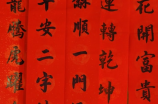 花開富貴
連轉乾坤
順一門
平安二字
龍騰虎躍